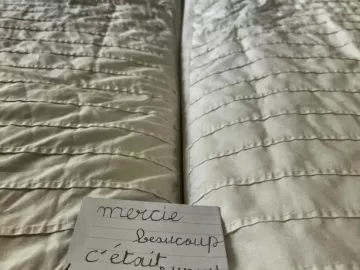 mercie
beaucoup
c'était